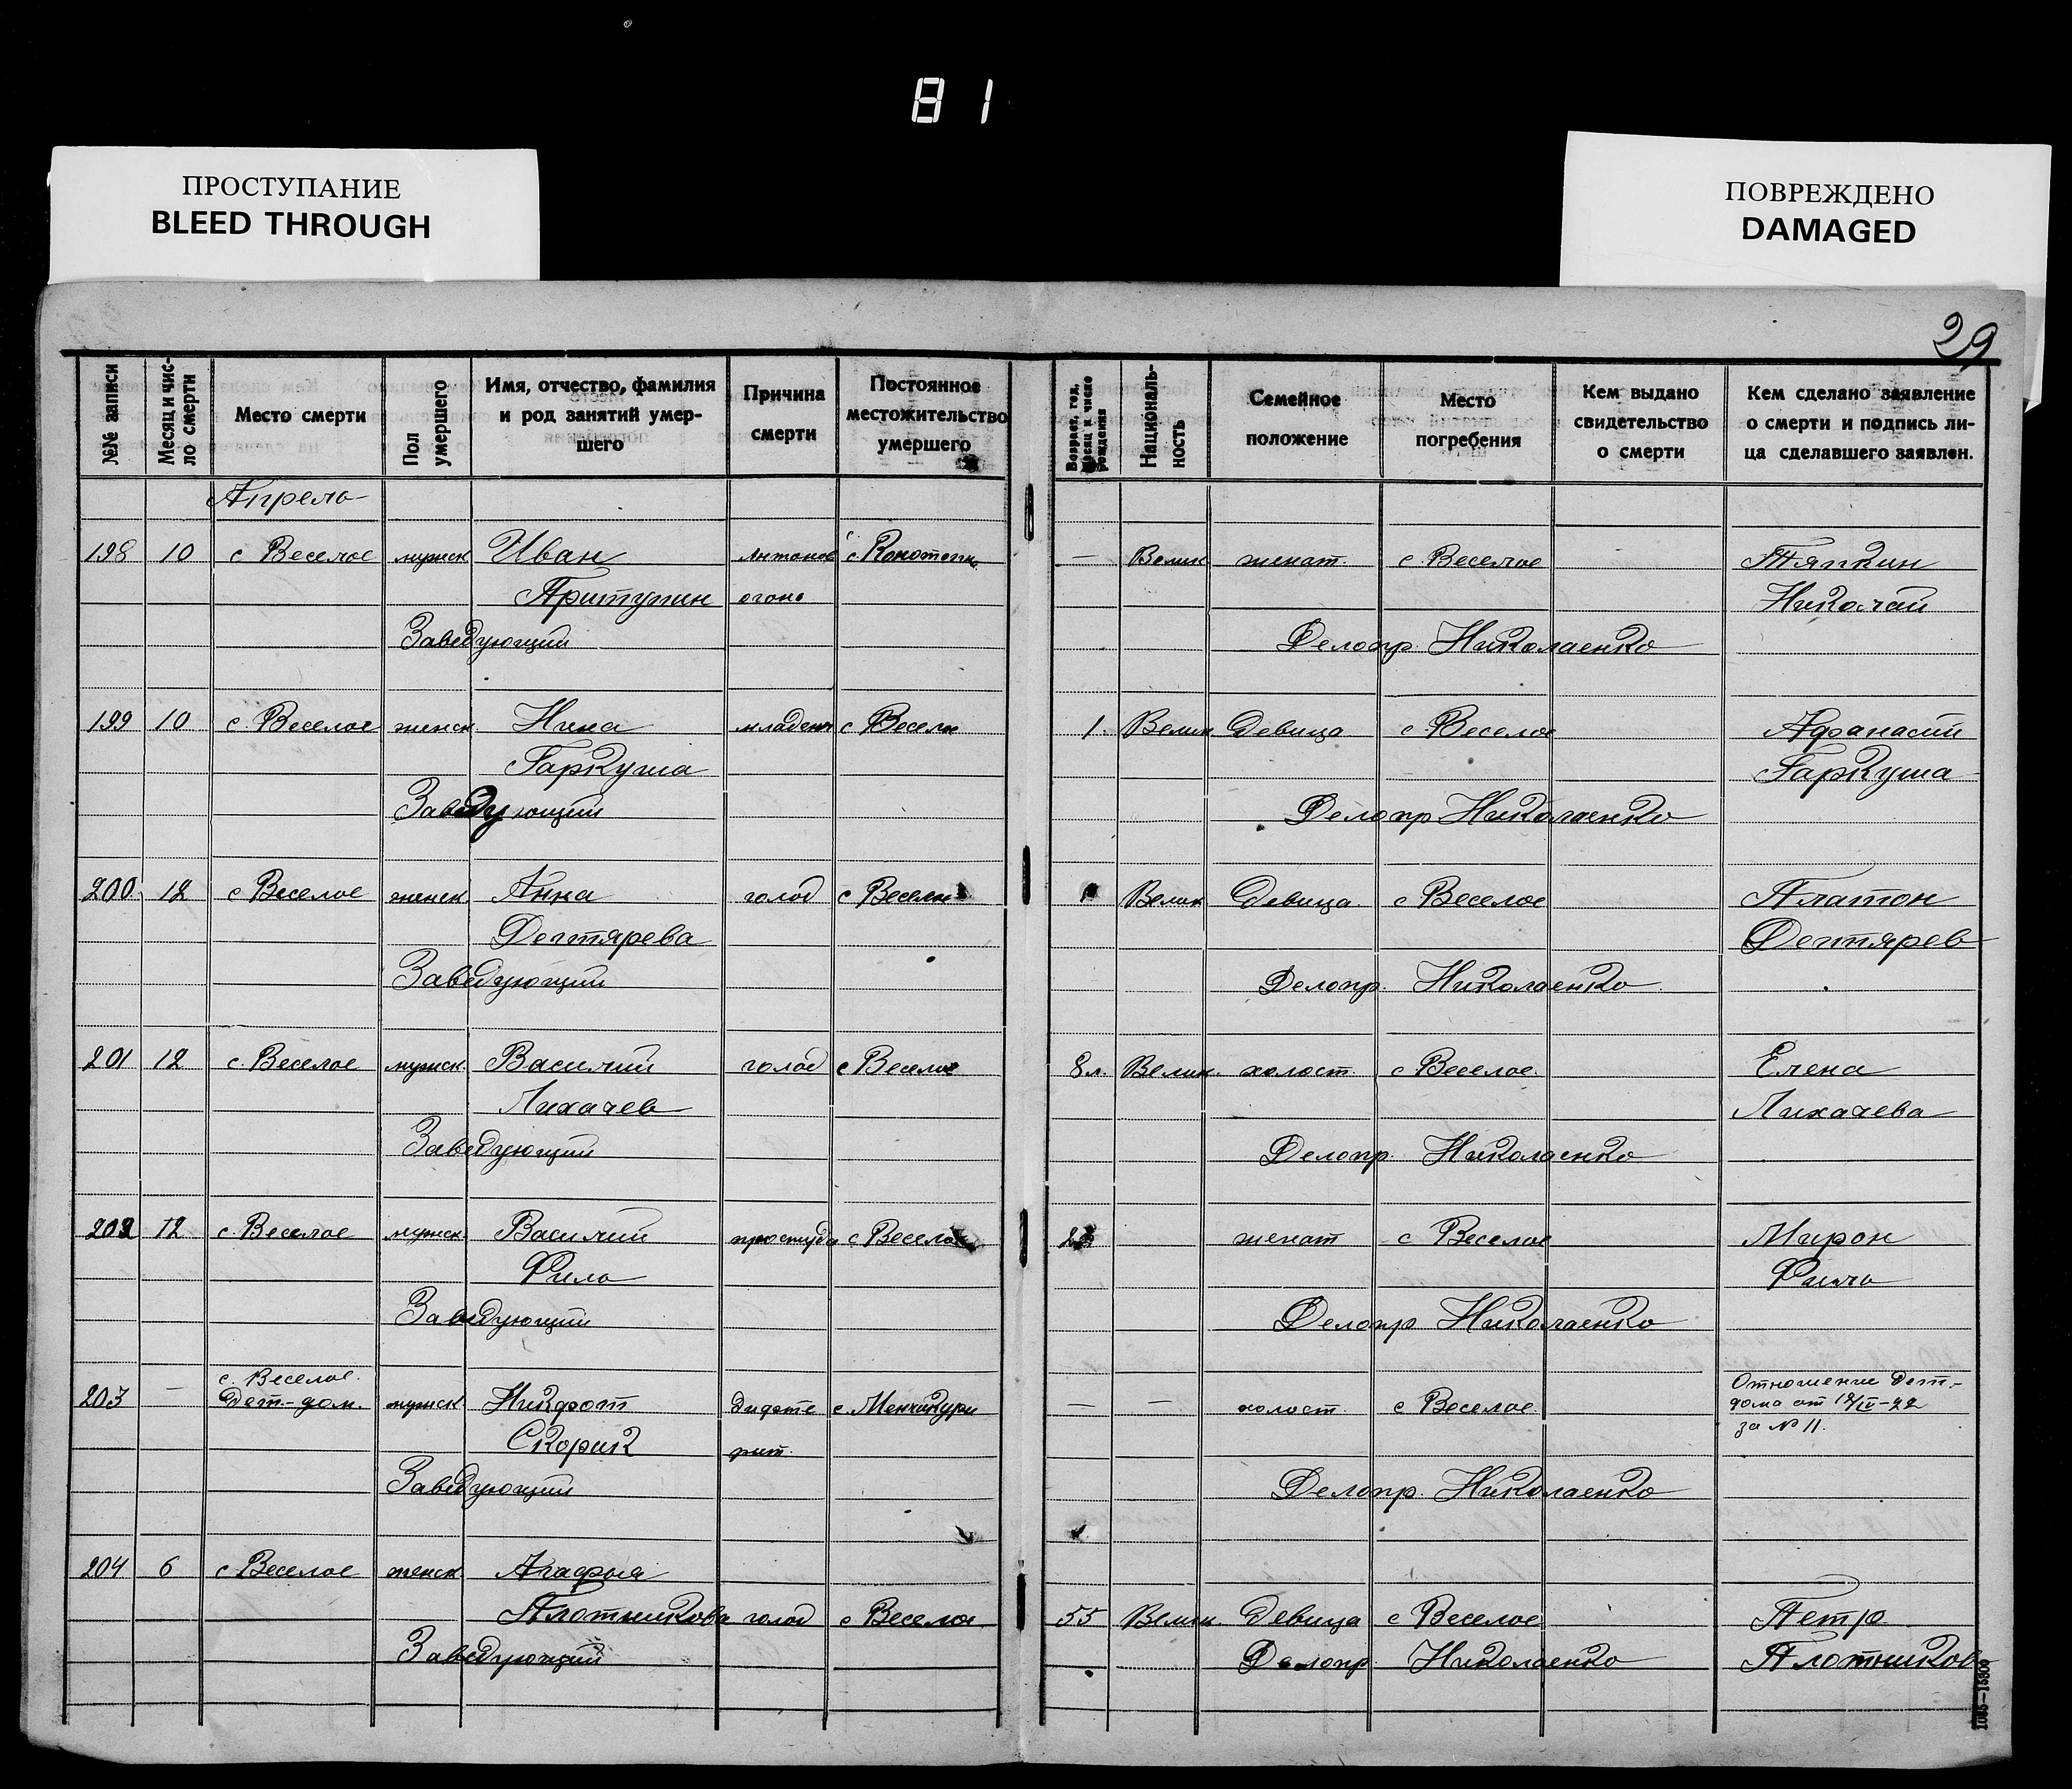 81
ПРОСТУПАНИЕ
BLEED THROUGH
ПОВРЕЖДЕНО
DAMAGED
29
№№ записи
Месяц и чис-
ло смерти
Место смерти
Пол
умершего
Имя, отчество, фамилия
и род занятий умер-
шего
Причина
смерти
Постоянное
местожительство
умершего
Возраст, год,
месяц и число
рождения
Националь-
ность
Семейное
положение
Место
погребения
Кем выдано
свидетельство
о смерти
Кем сделано заявление
о смерти и подпись ли-
ца сделавшего заявлен.
Апрель
198 10 с Веселое мужск Иван Антонов — Велик женат. с Веселое Тяпкин
Притупин огонь Николай
Заведующий Делопр. Николаенко
199 10 с. Веселое женск. Нина младен с Веселое 1. Велик Девица с Веселое Афанасий
Гаркуша Гаркуша
Заведующий Делопр Николаенко
200 12 с Веселое женск Анна голод с Веселое Велик Девица с Веселое Платон
Дегтярева Дегтярев
Заведующий Делопр. Николаенко
201 12 с. Веселое мужск. Василий голод с Веселое 8 л. Велик. холост. с Веселое. Елена
Лихачев Лихачева
Заведующий Делопр. Николаенко
202 12 с. Веселое мужск Василий простуда с Веселое женат с Веселое Мирон
Фило Фило
Заведующий Делопр Николаенко
203 — с. Веселое. Дет.-дом. мужск Никфот дифте с. Менчикури — — холост. с Веселое. Отношение Дет.-
дома от 12/IV-22
за № 11.
Скорик рит.
Заведующий Делопр. Николаенко
204 6 с Веселое женск Агафья
Плотникова голод с Веселое 55 Велик. Девица с Веселое Петр
Заведующий Делопр Николаенко Плотников
1065—15300